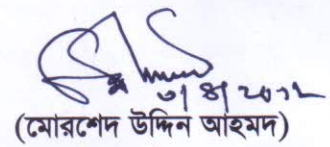 ৩/৪/২০১২
(মোরশেদ উদ্দিন আহমদ)